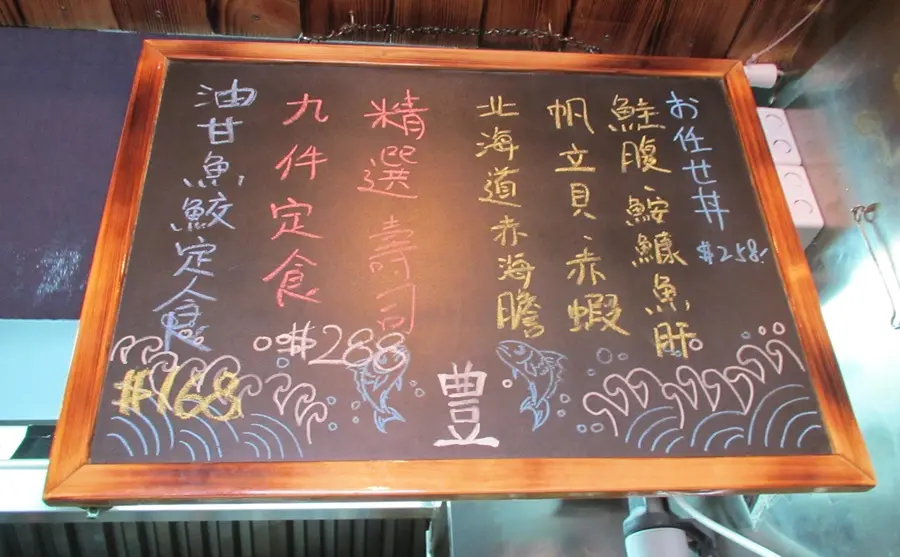 お任せ丼
$258.
鮭腹、鮟鱇魚肝
帆立貝、赤蝦
北海道赤海膽
精選壽司
九件定食
$288
油甘魚鮫定食
$168
豊